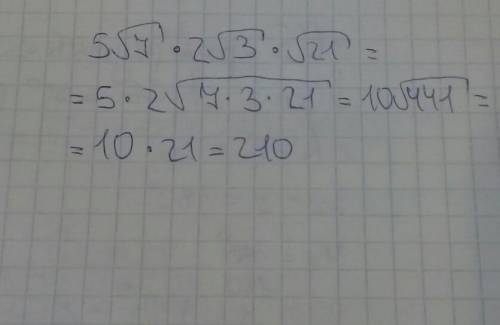 5√7 · 2√3 · √21 =
= 5 · 2√7 · 3 · 21 = 10√441 =
= 10 · 21 = 210